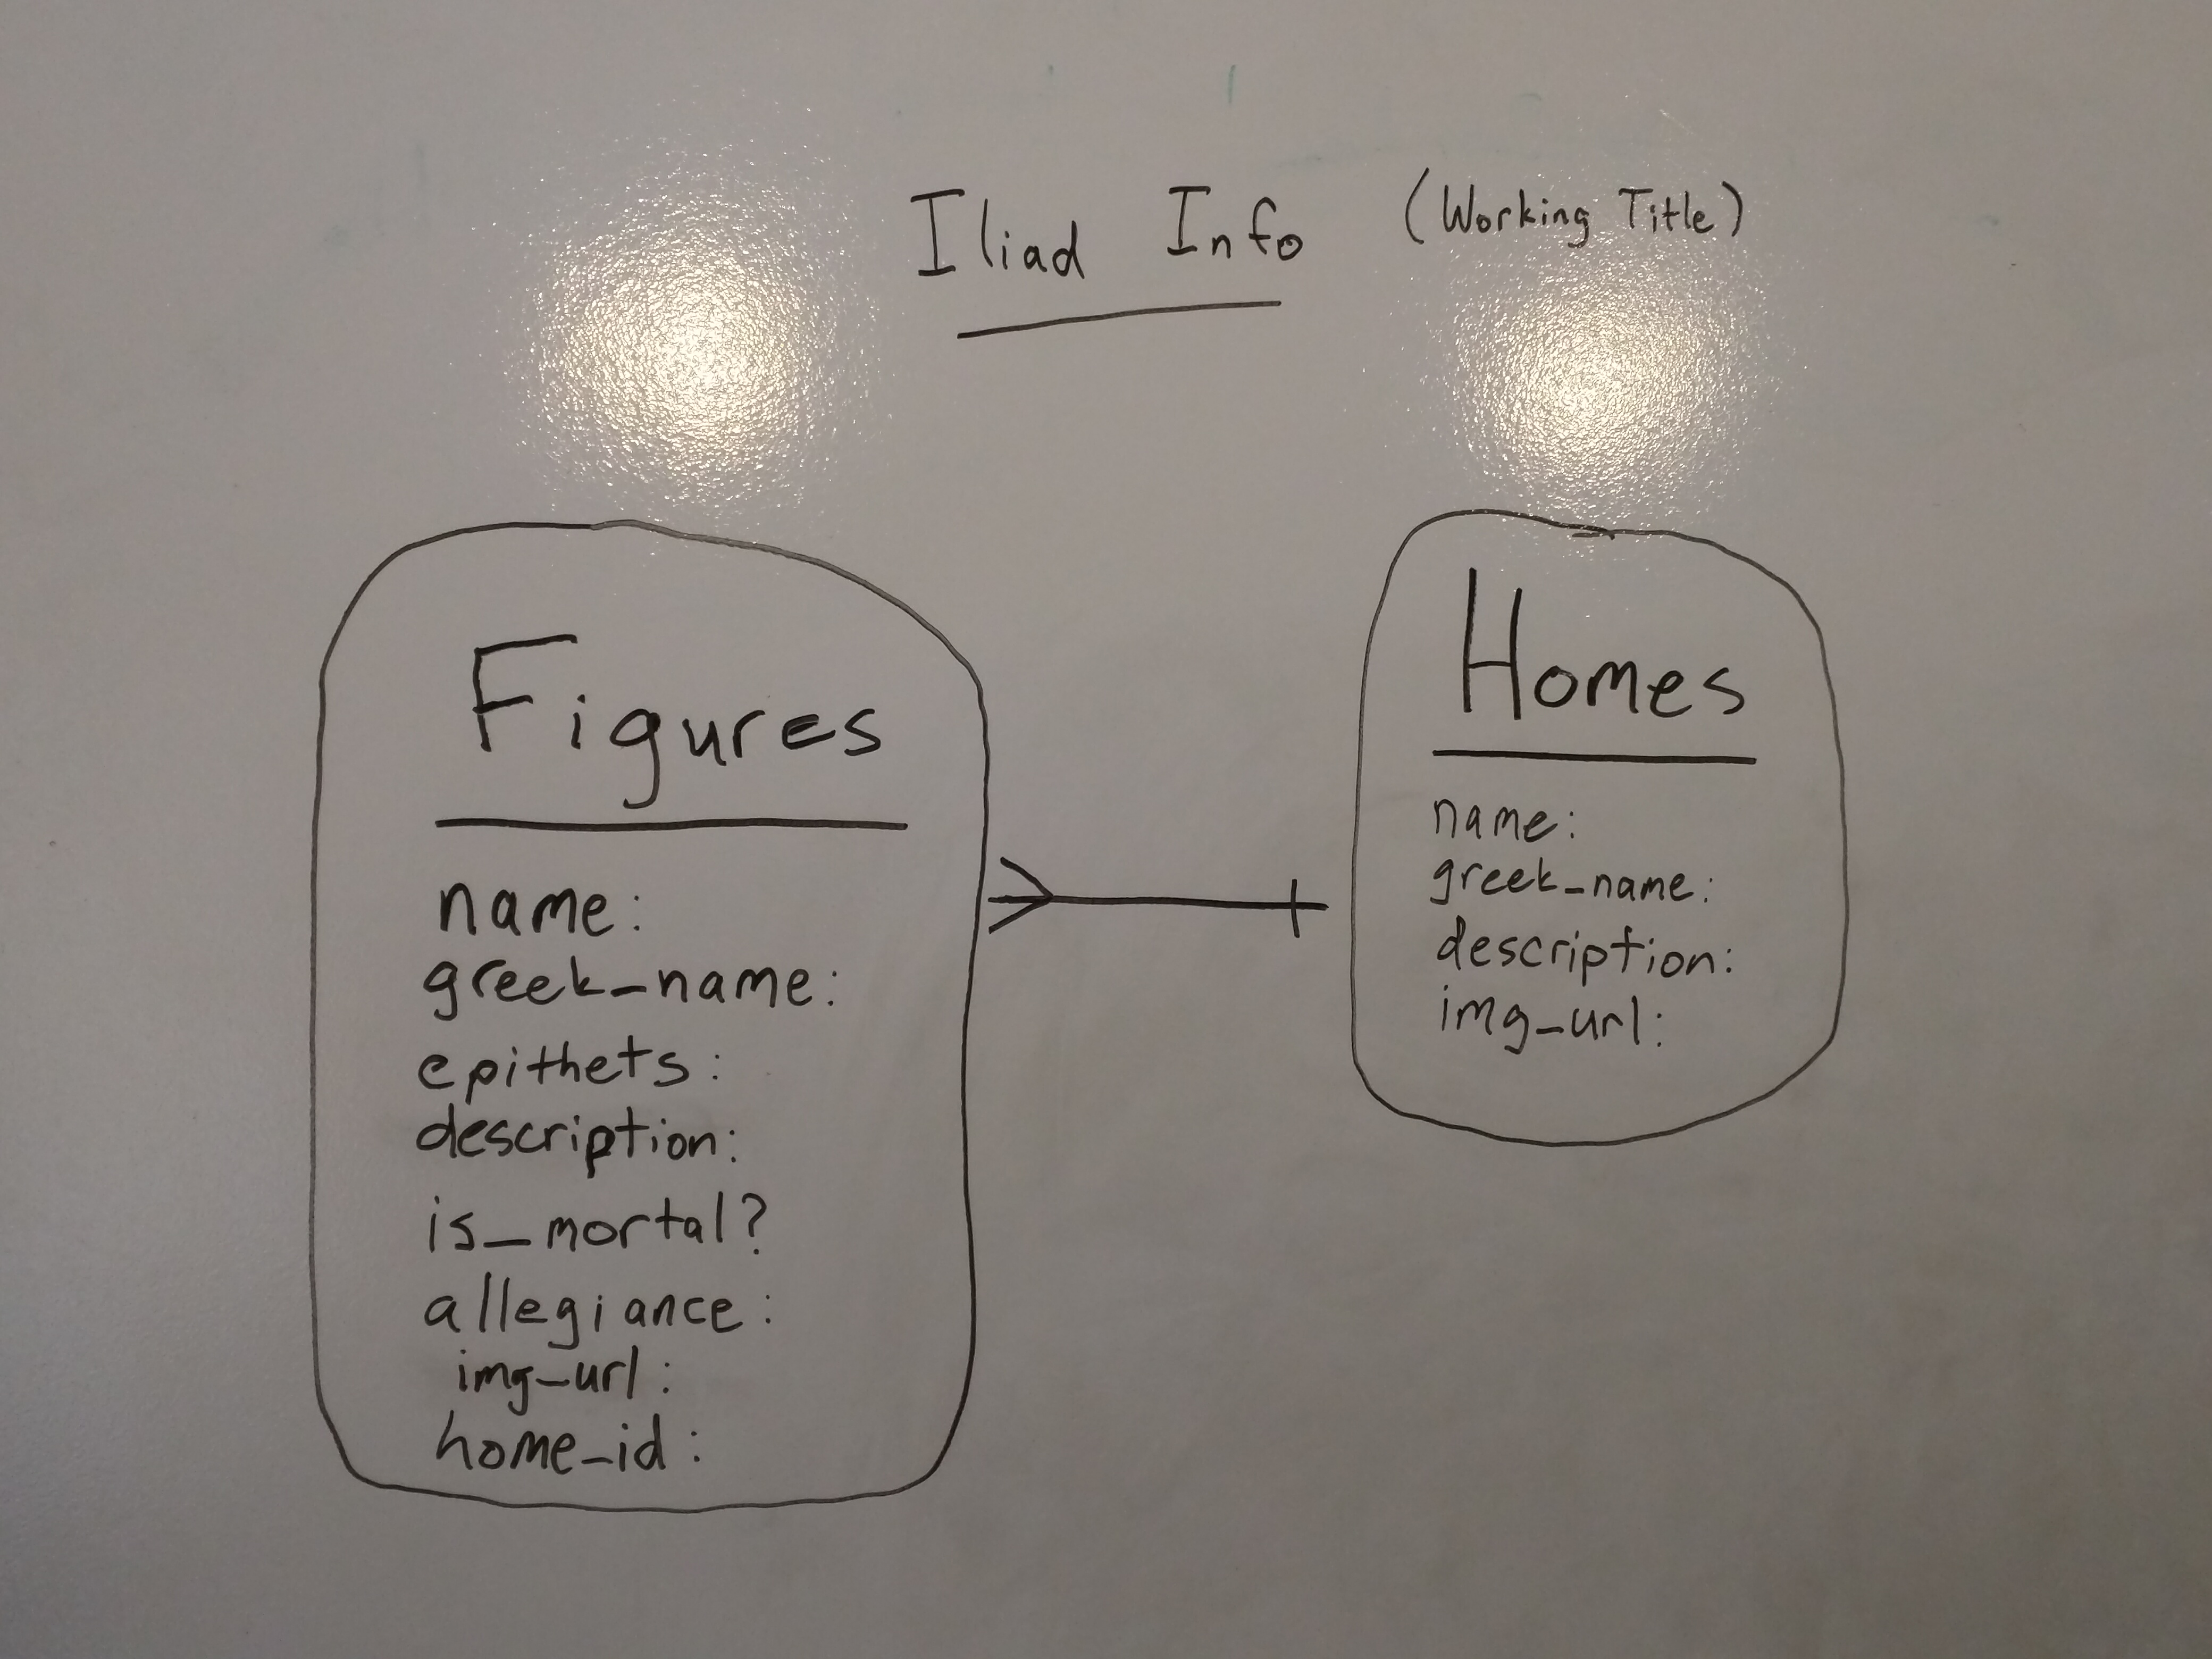 Iliad Info (Working Title)
Figures
name:
greek_name:
epithets:
description:
is_mortal?
allegiance:
img_url:
home_id:
Homes
name:
greek_name:
description:
img_url: